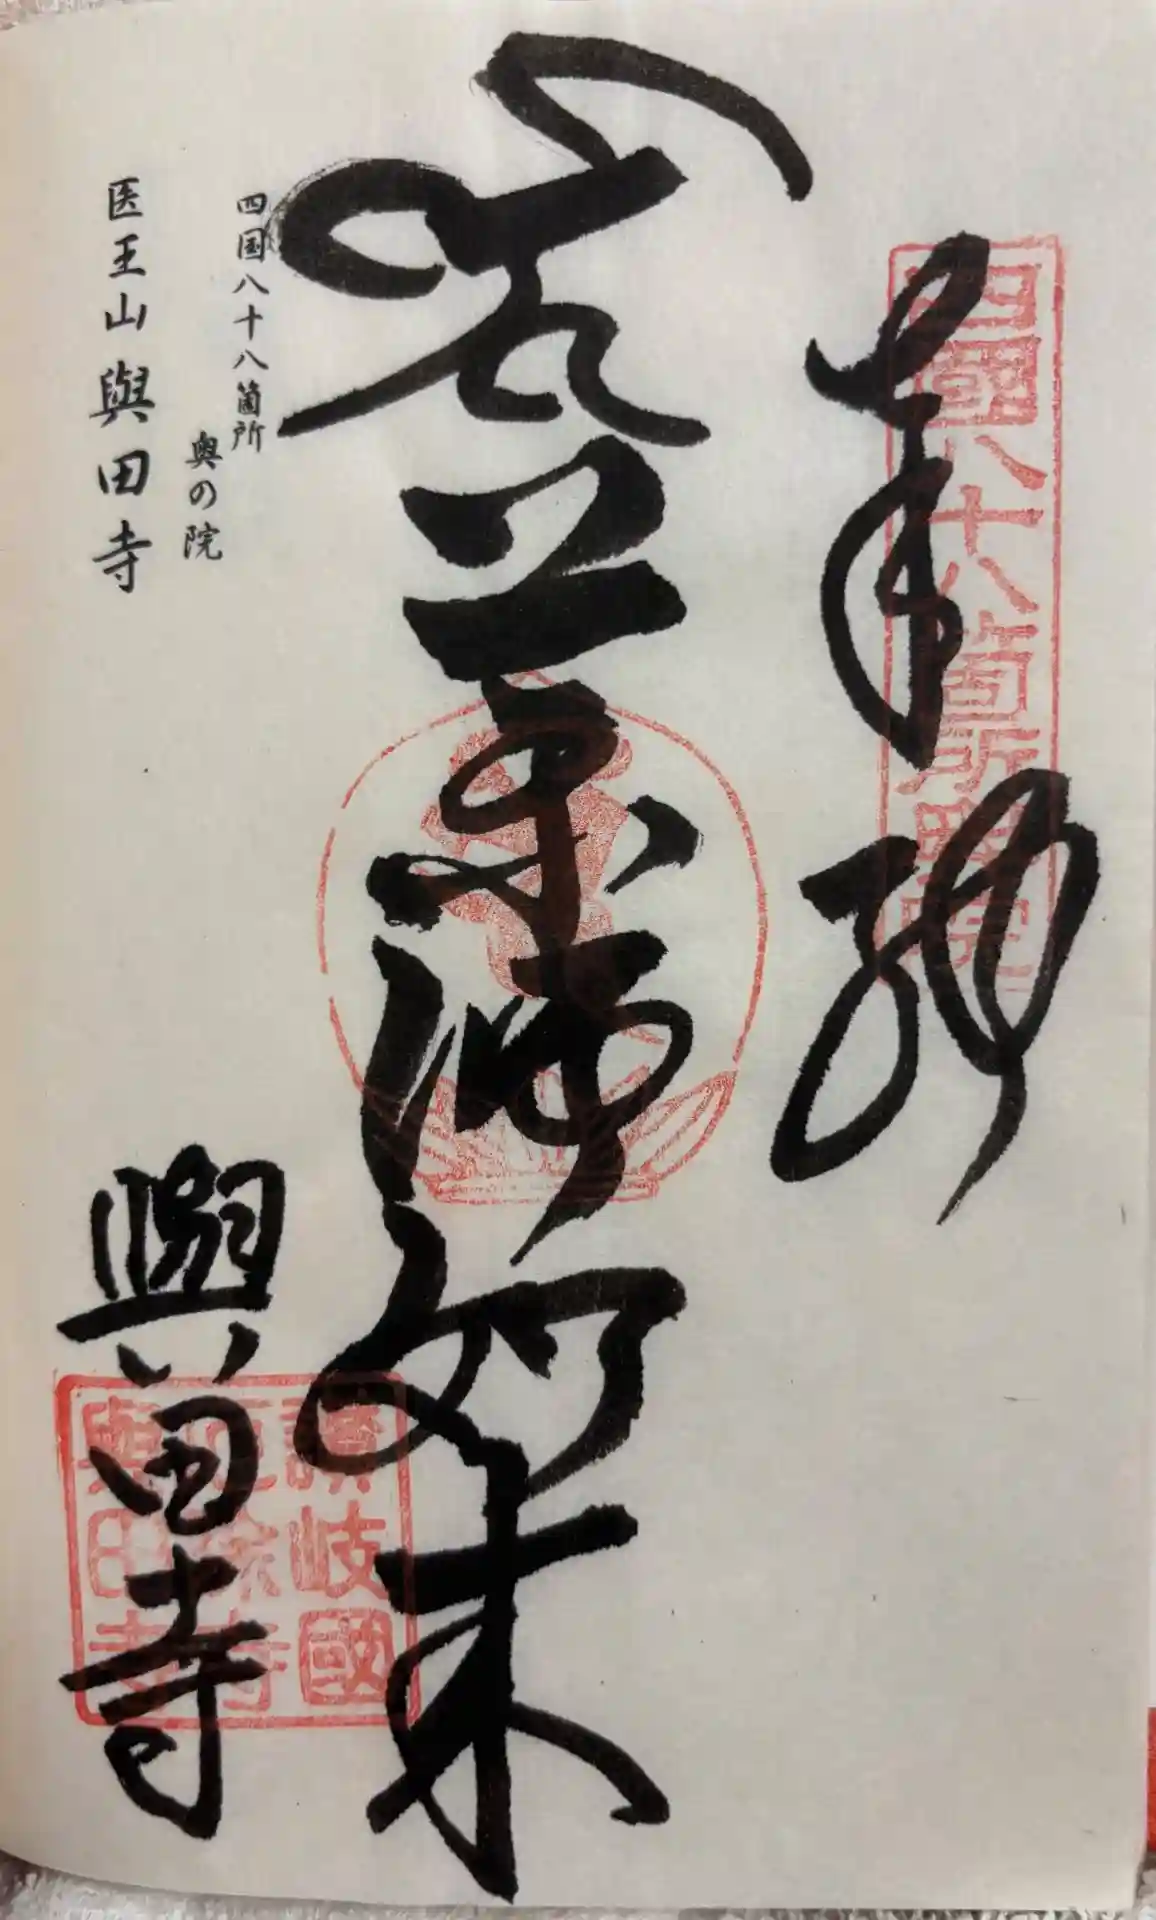 四國八十八箇所奥院
奉拝
薬師如来
讃岐國
與田寺
與田寺
四国八十八箇所
奥の院
医王山與田寺